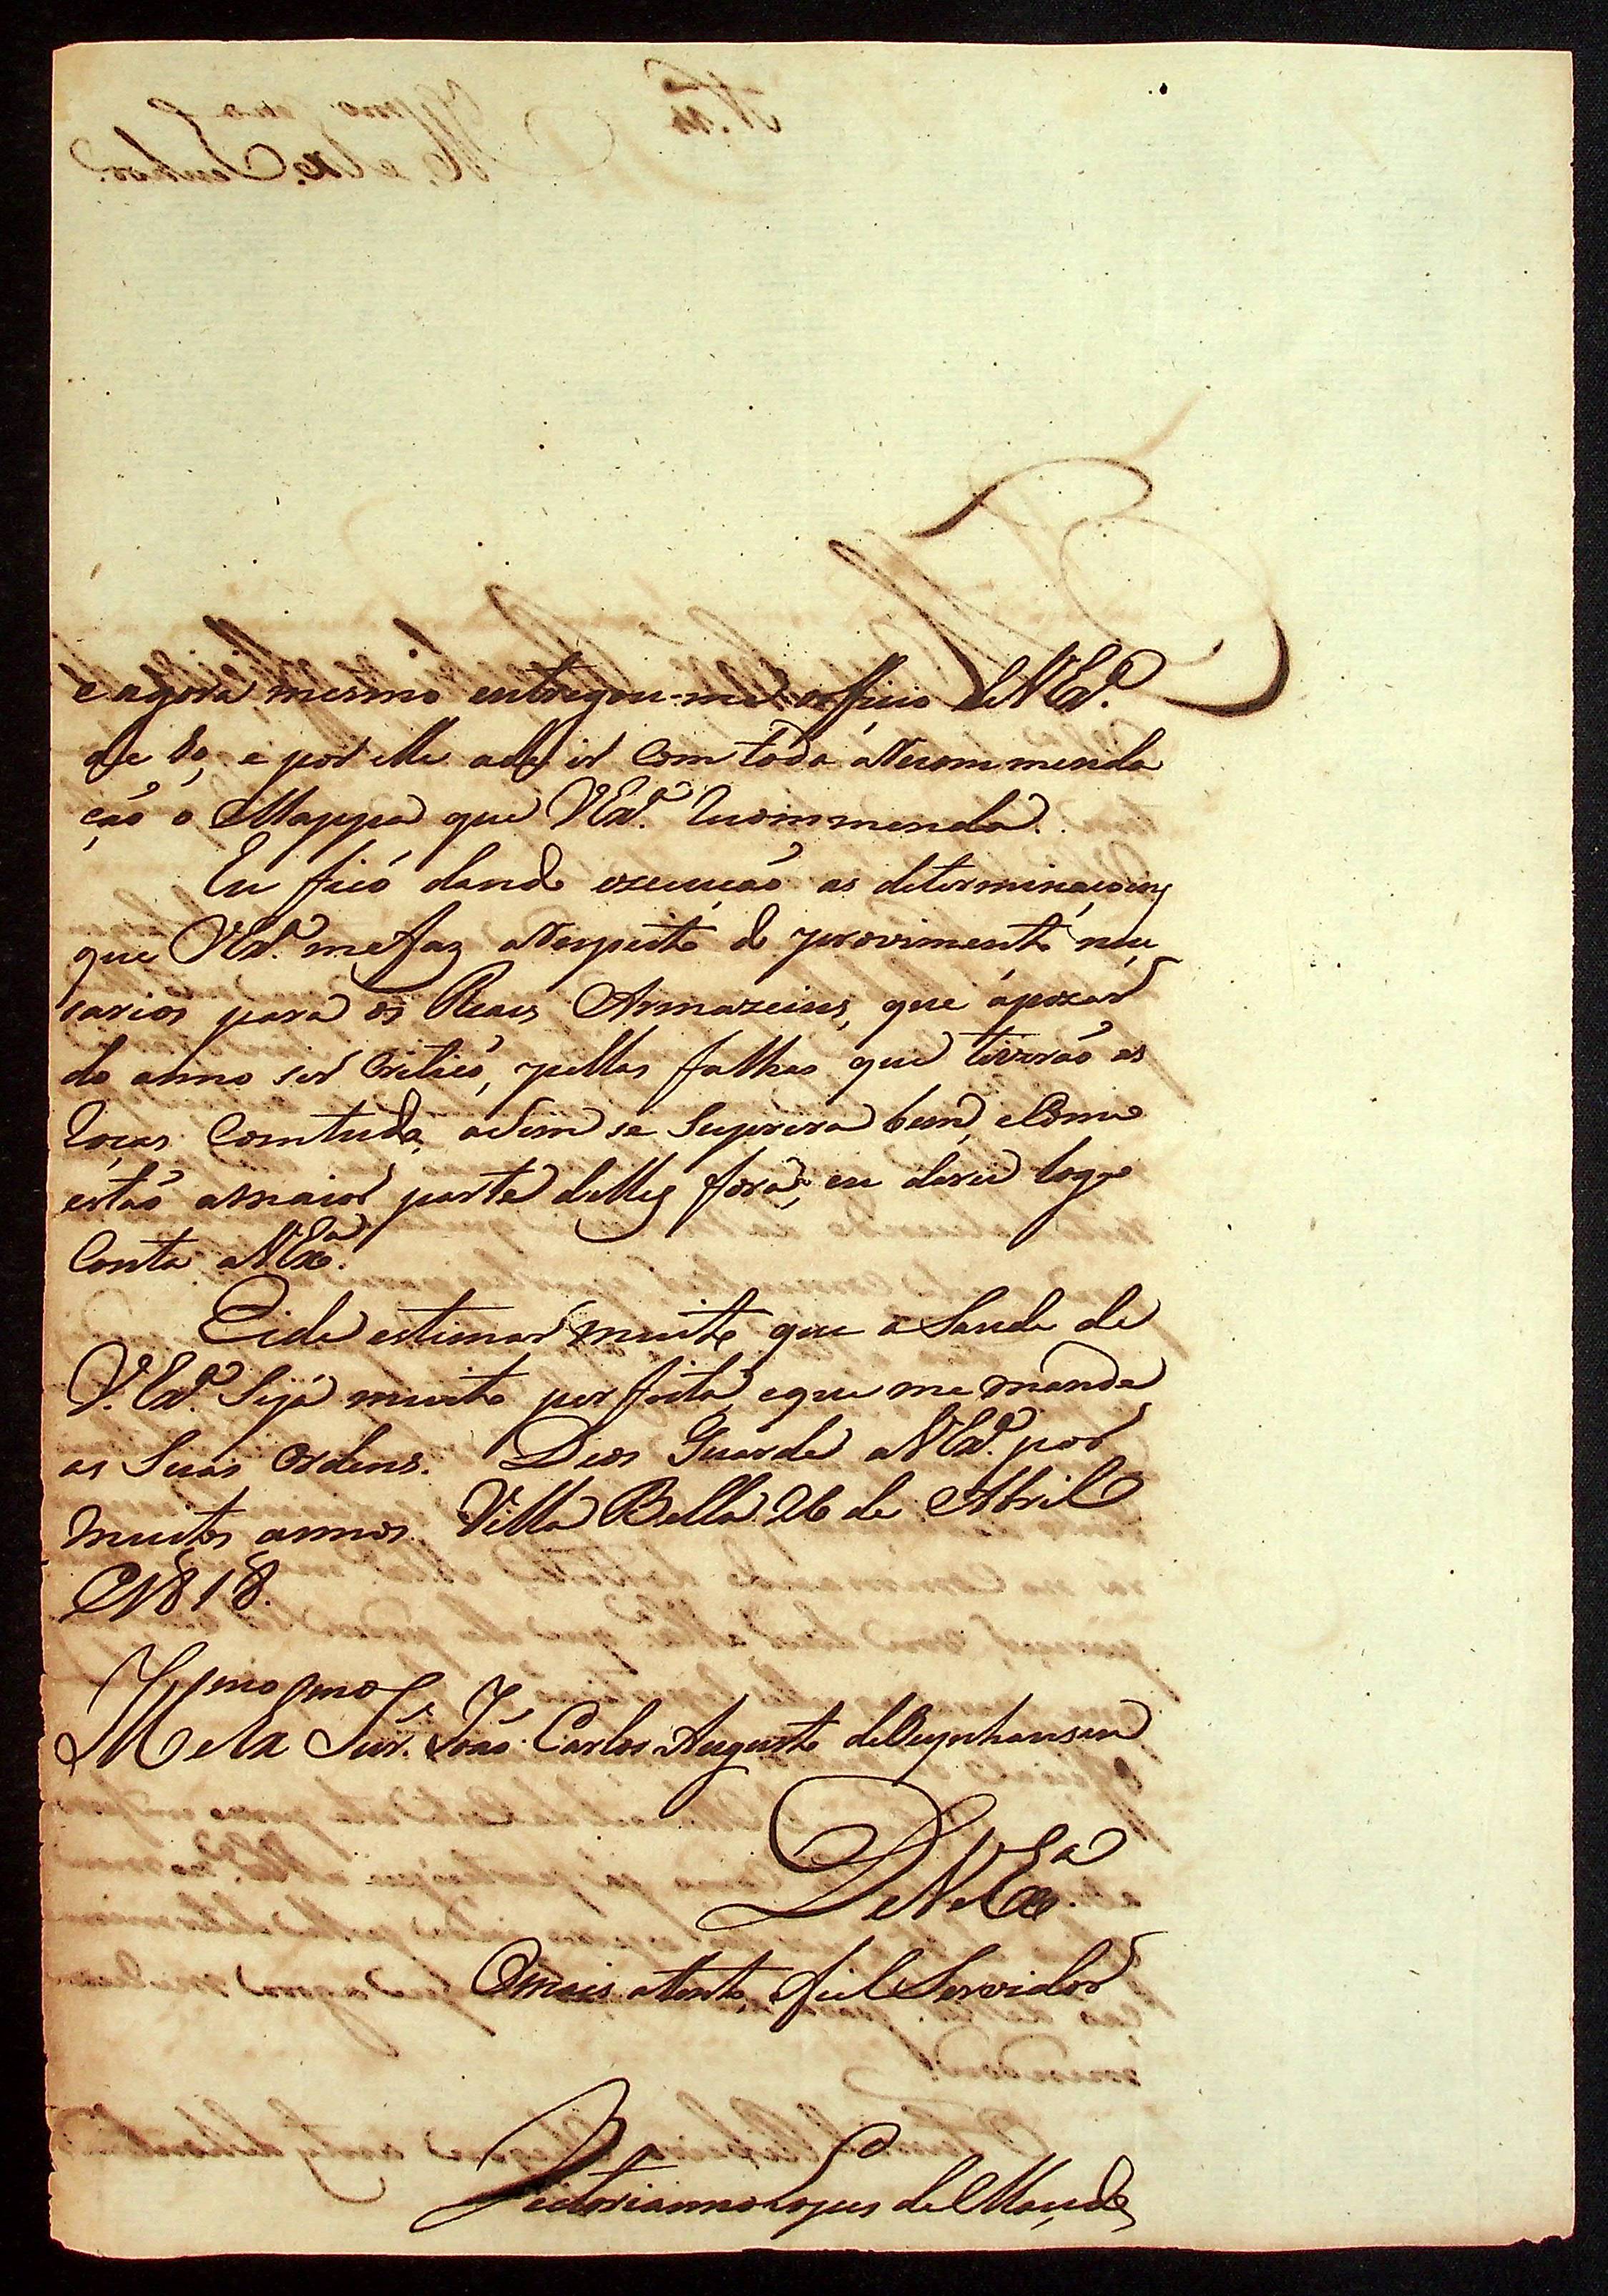 e agora mesmo entregou-me o officio de V Exª.
de 80, e por elle ade ir com toda a Recommenda
ção o Mappa que V Exª. Recommenda.
Eu ficó dando execução as determinaçoens
que V Exª. me faz a Respeito do provimento neces
sarios para os Reaes Armazeins, que apezar
do anno ser Critico, pellas falhas que tiverão as
Roças Comtudo, adem se Suprir bem, e Como
estão a maior parte delles fora, eu darei logo
Conta a V Exª.
Eide estimar muito que a Saude de
V. Exª. Sejá muito perfeita, e que me manda
as Suas Ordens. Deos Guarde a V Exª. por
muitos annos. Villa Bella 26 de Abril
de 1818.
Illmo e Exmo Snr. João Carlos Augusto de Oeynhausen
De V Exª.
O mais atento, fiel Servidor
Victorianno Lopes de Macedo